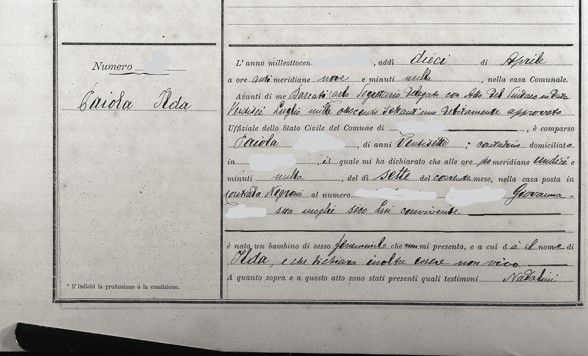 Numero
Caiola Ilda
L'anno milleottocen , addì dieci di Aprile
a ore antimeridiane nove e minuti nulla , nella casa Comunale.
Avanti di me Segretario Delegato con Atto del Sindaco in data
Luglio mille debitamente approvato
Uffiziale dello Stato Civile del Comune di , è comparso
Caiola , di anni ventisette ; domiciliato
in , il quale mi ha dichiarato che alle ore pomeridiane undici e
minuti nulla , del dì sette del corrente mese, nella casa posta in
contrada Negroni al numero Giovanna
sua moglie seco lui convivente
è nato un bambino di sesso femminile che non mi presenta, e a cui dà il nome di
Ilda, e che dichiara inoltre essere non vivo
A quanto sopra e a questo atto sono stati presenti quali testimoni Nadalini
* S'indichi la professione o la condizione.